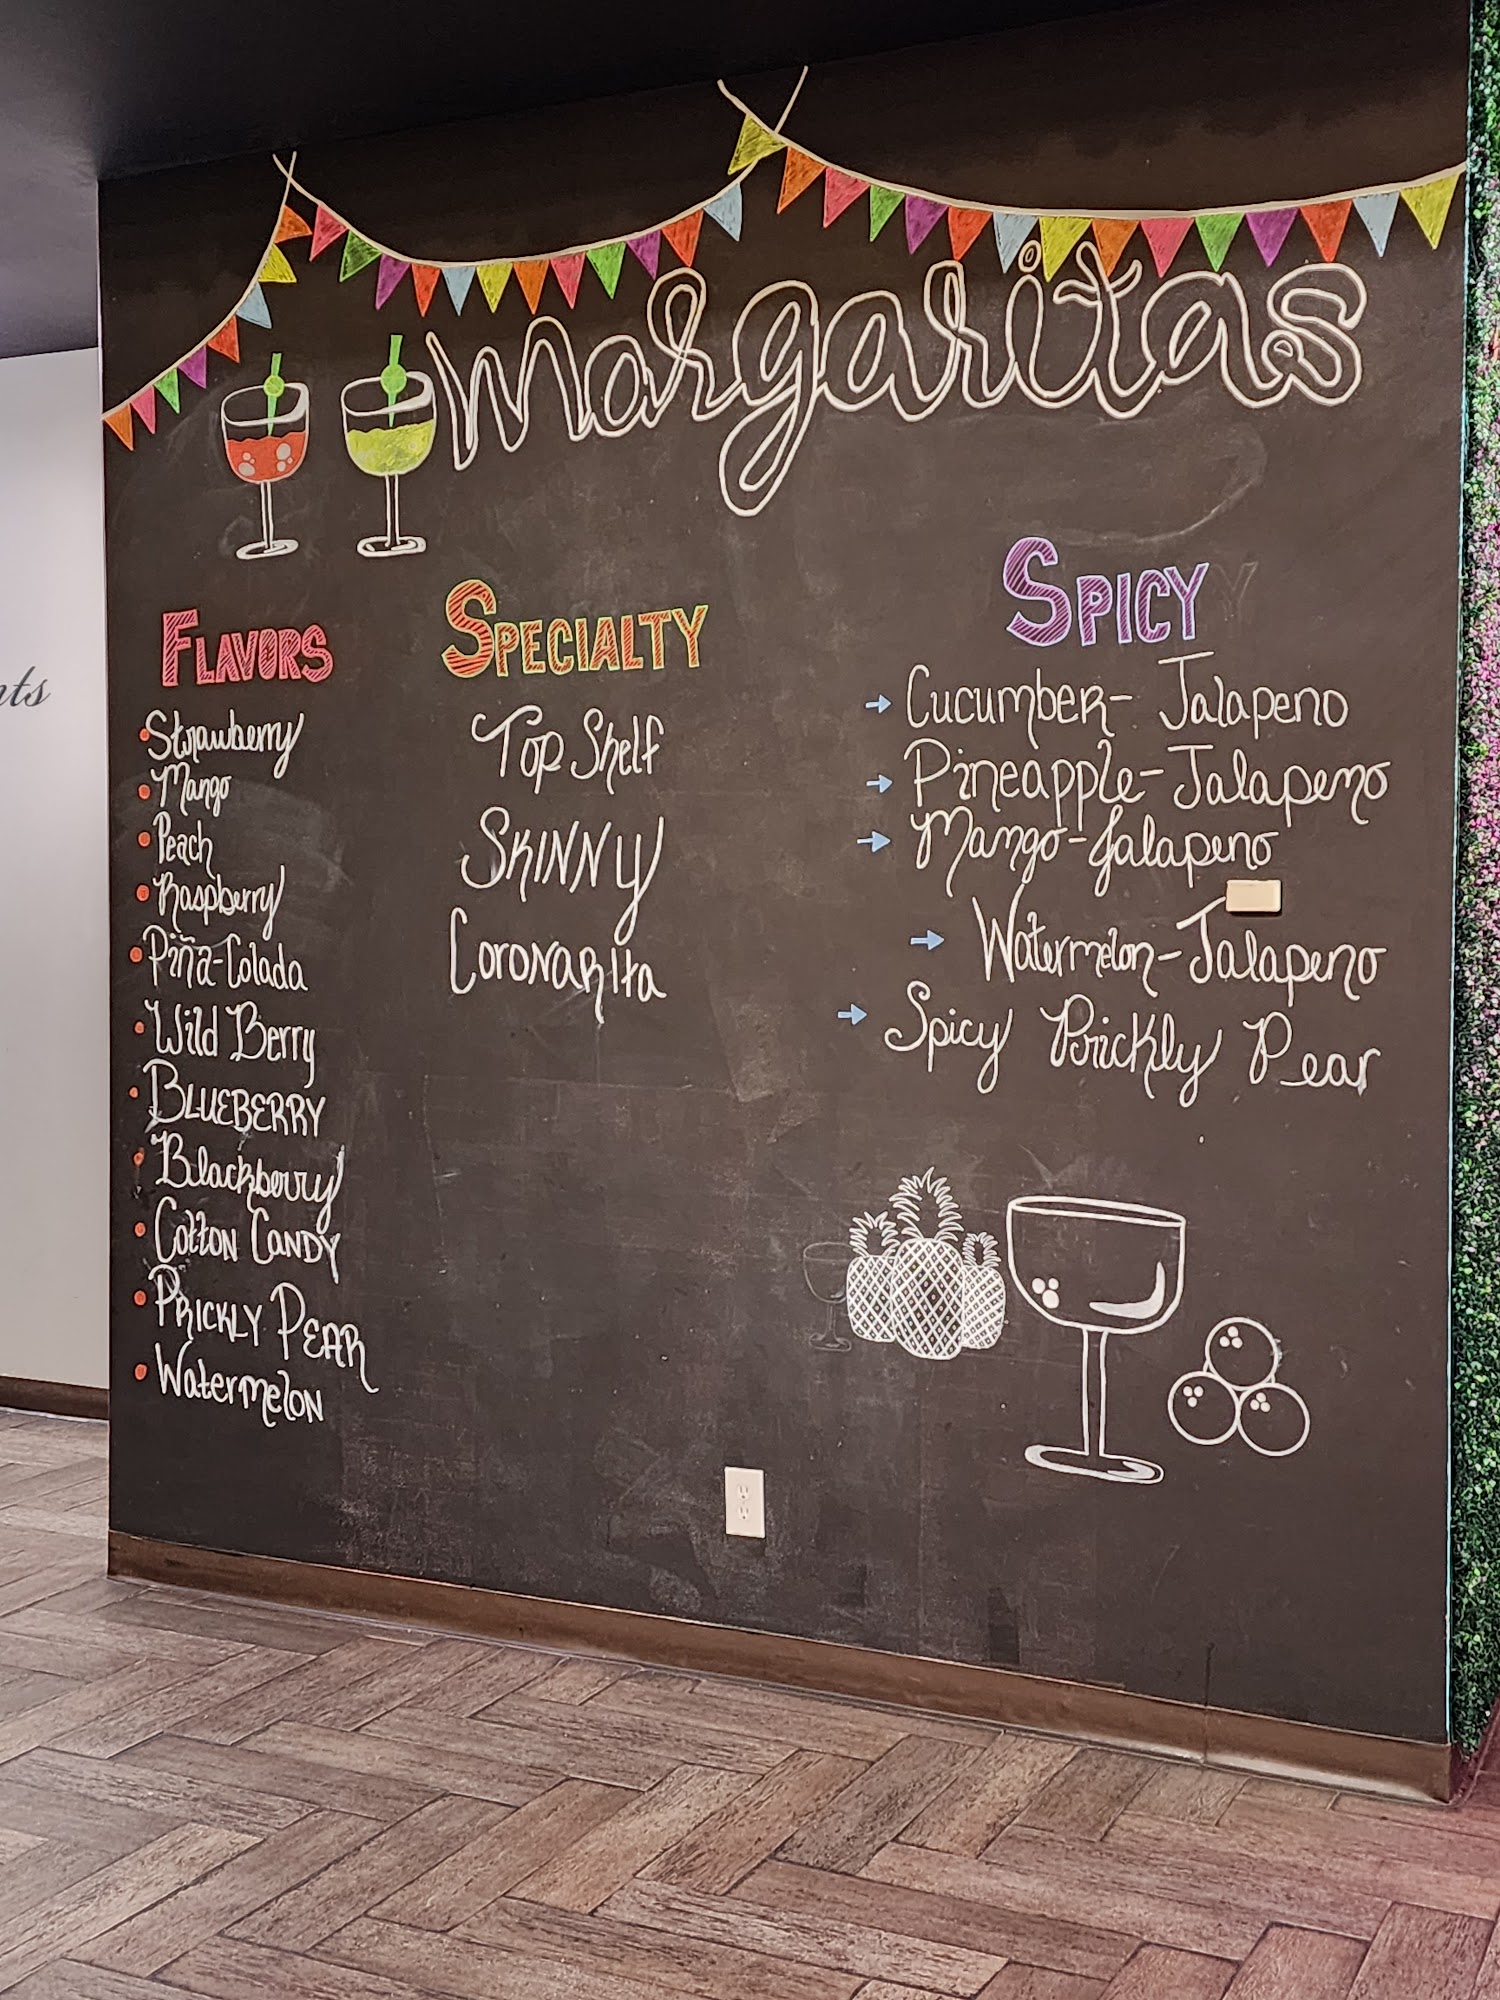 margaritas
Flavors
Strawberry
Mango
Peach
Raspberry
Piña-Colada
Wild Berry
Blueberry
Blackberry
Cotton Candy
Prickly Pear
Watermelon
Specialty
Top Shelf
Skinny
Coronarita
Spicy
Cucumber- Jalapeno
Pineapple- Jalapeno
Mango-Jalapeno
Watermelon-Jalapeno
Spicy Prickly Pear